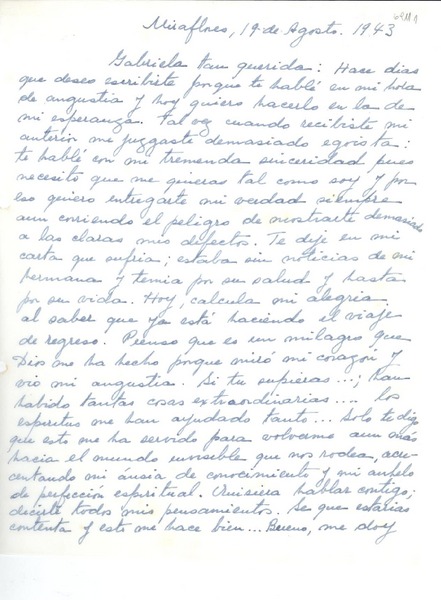 Miraflores, 19 de Agosto. 1943
Gabriela tan querida: Hace dias
que deseo escribirte porque te hablé en mi hora
de angustia y hoy quiero hacerlo en la de
mi esperanza. Tal vez cuando recibiste mi
anterior me juzgaste demasiado egoista:
te hablé con mi tremenda sinceridad pues
necesito que me quieras tal como soy y por
eso quiero entregarte mi verdad siempre
aun corriendo el peligro de mostrarte demasiado
a las claras mis defectos. Te dije en mi
carta que sufria; estaba sin noticias de mi
hermana y temia por su salud y hasta
por su vida. Hoy, calcula mi alegria
al saber que ya está haciendo el viaje
de regreso. Pienso que es un milagro que
Dios me ha hecho porque miró mi corazón y
vió mi angustia. Si tu supieras...; han
habido tantas cosas extraordinarias.... los
espiritus me han ayudado tanto... Solo te digo
que esto me ha servido para volverme aun más
hacia el mundo invisible que nos rodea, acre-
centando mi ánsia de conocimiento y mi anhelo
de perfección espiritual. Quisiera hablar contigo;
decirte todos mis pensamientos. Se que estarias
contenta y esto me hace bien... Bueno, me doy